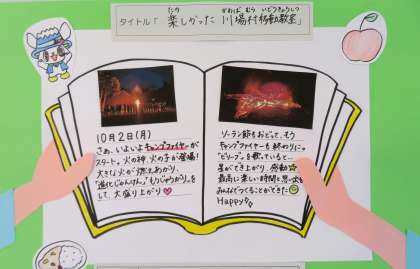 タイトル「楽しかった 川場村移動教室」
たの かわば むら いどうきょうしつ
10月2日(月)
さぁ、いよいよキャンプファイヤーが
スタート。火の神、火の子が登場!
大きな火が燃えあがり、
"進化じゃんけん"、"もうじゅうがり"を
して、大盛り上がり♡
ソーラン節をおどって、もう
キャンプファイヤーも終わりに…
"ビリーブ"を歌っていると…
星ができ上がり、感動☆
最高に楽しい時間と思い出を
みんなでつくることができた
Happy♪